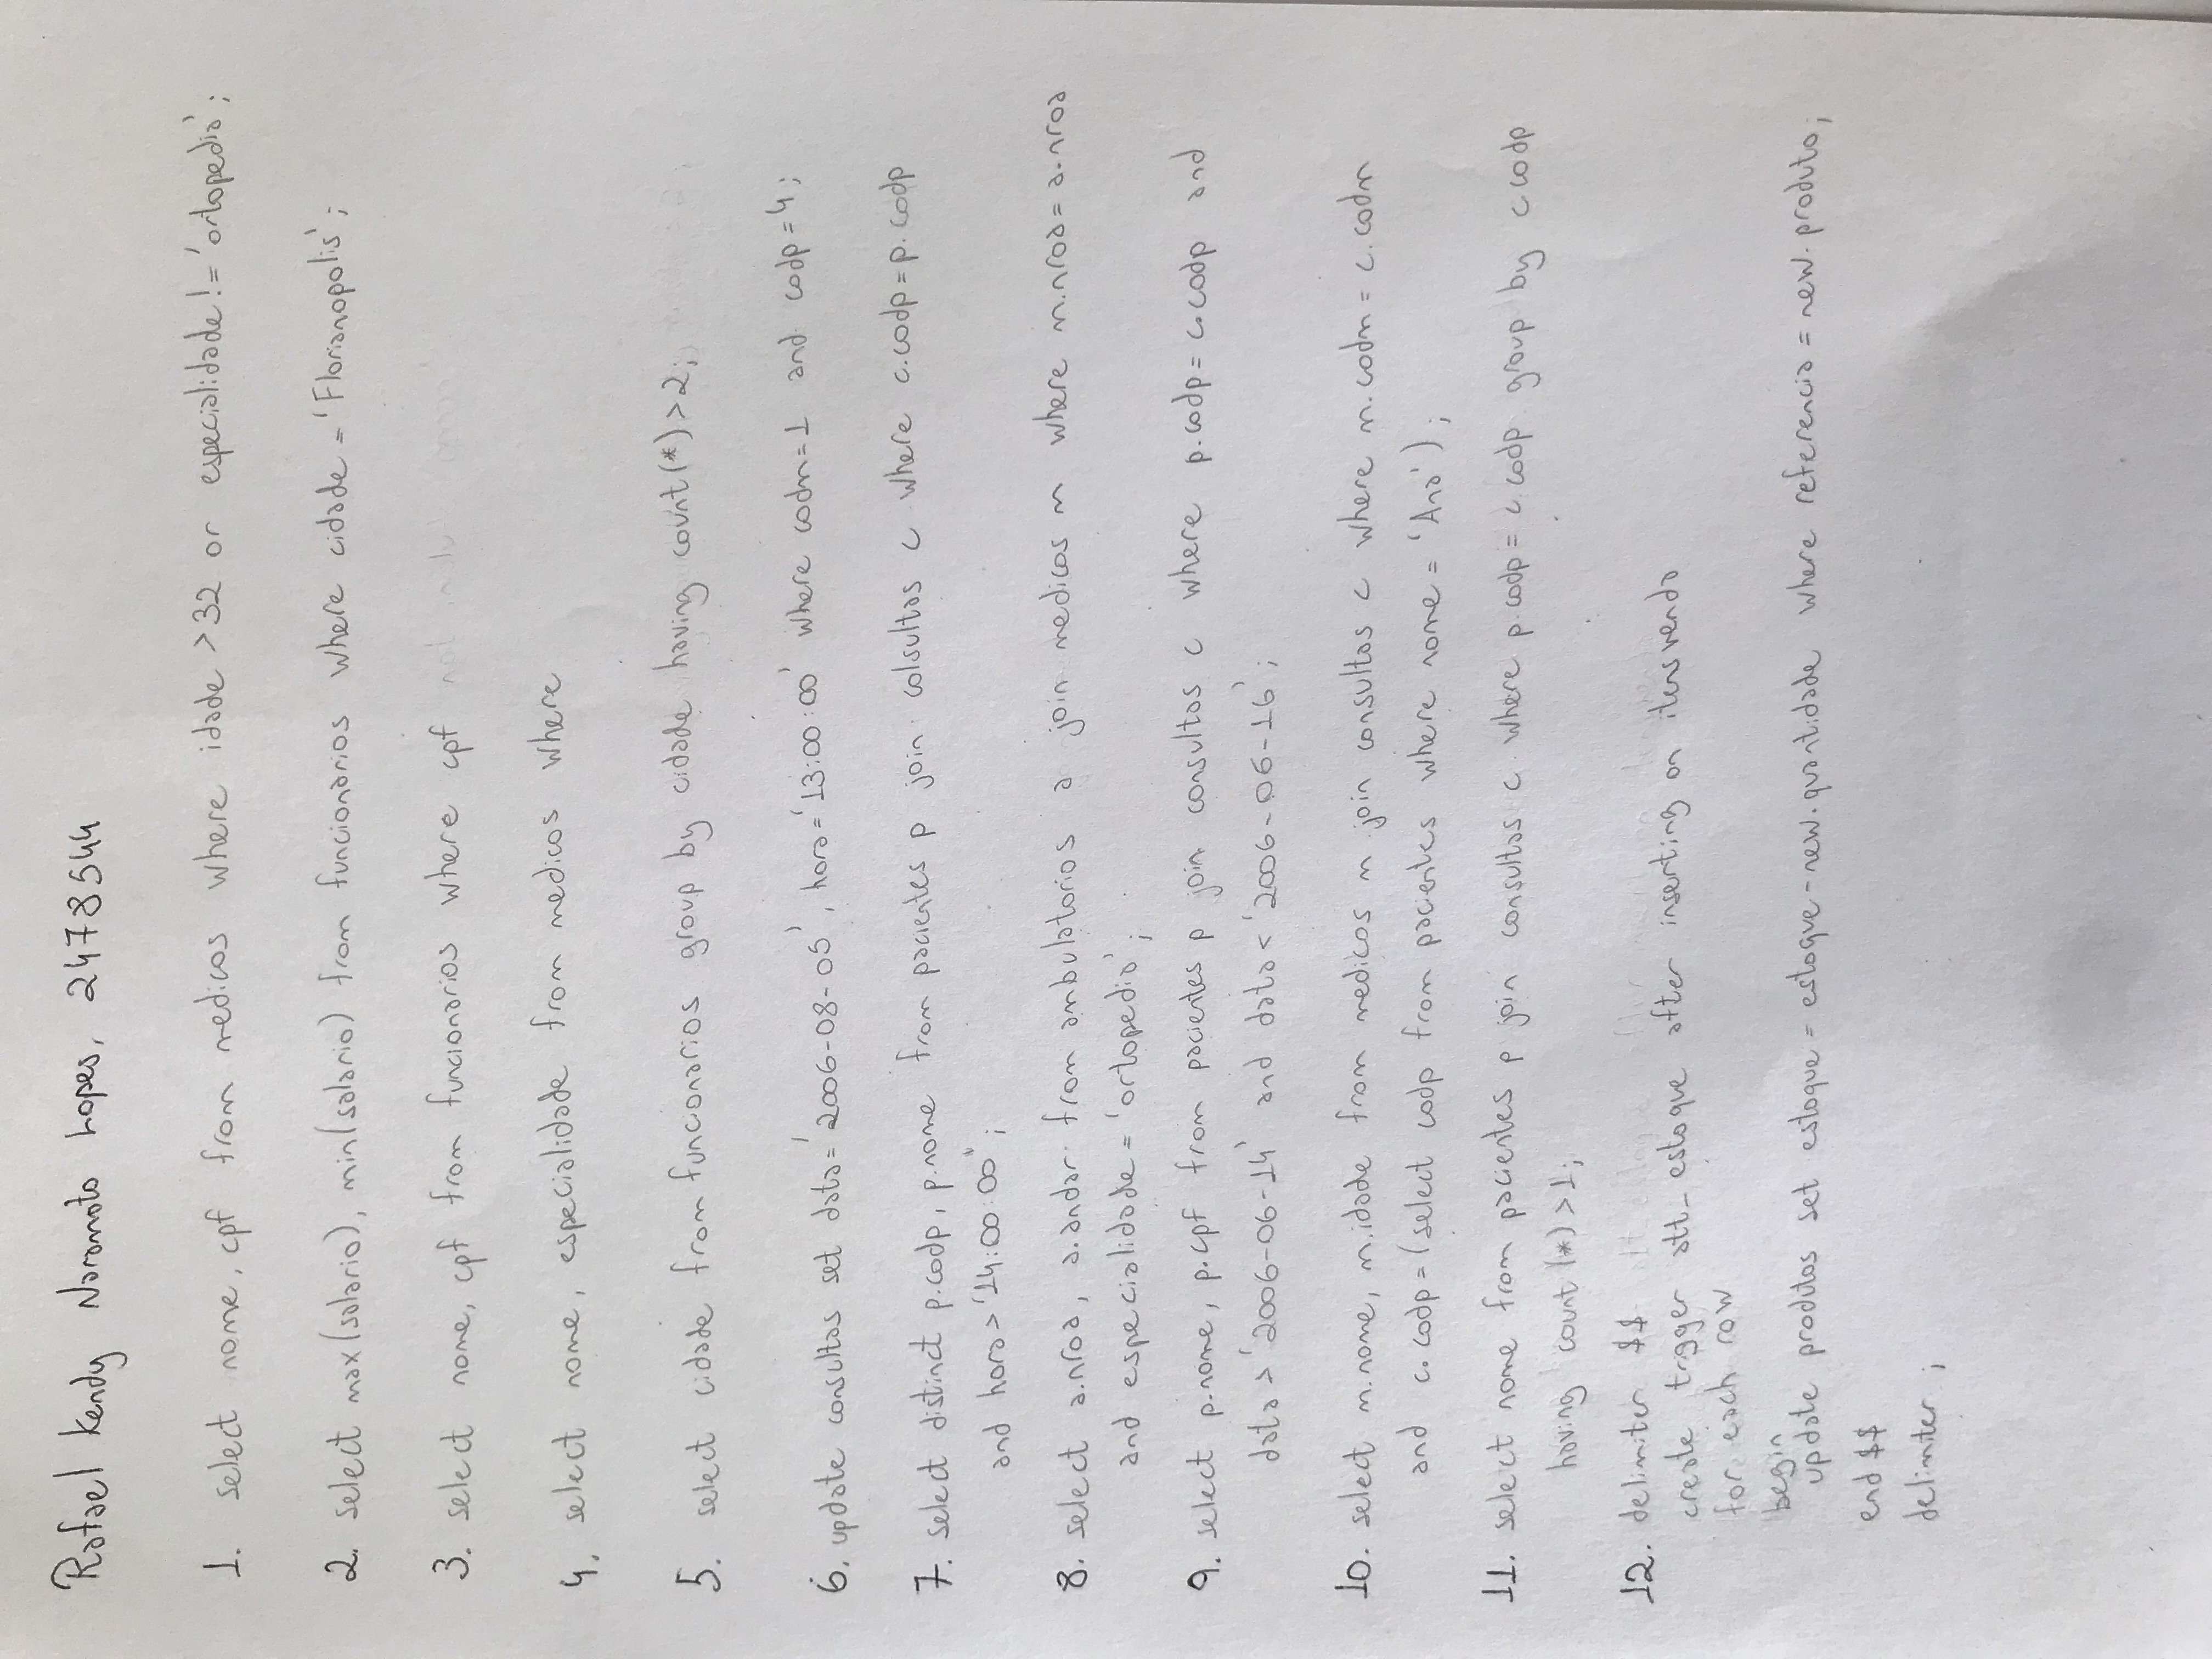 Rafael Kendy Naramoto Lopes, 2478544
1. select nome, cpf from medicos where idade >32 or especialidade!='ortopedia';
2. select max(salario), min(salario) from funcionarios where cidade = 'Florianopolis';
3. select nome, cpf from funcionarios where cpf
4. select nome, especialidade from medicos where
5. select cidade from funcionarios group by cidade having count(*)>2;
6. update consultas set data='2006-08-05', hora='13:00:00' where codm=1 and codp=4;
7. select distinct p.codp, p.nome from pacientes p join colsultas c where c.codp=p.codp
and hora>'14:00:00";
8. select a.nroa, a.andar from ambulatorios a join medicos m where m.nroa=a.nroa
and especialidade='ortopedia';
9. select p.nome, p.cpf from pacientes p join consultas c where p.codp=c.codp and
data>'2006-06-14' and data<'2006-06-16';
10. select m.nome, m.idade from medicos m join consultas c where m.codm=c.codm
and c.codp=(select codp from pacientes where nome='Ana');
11. select nome from pacientes p join consultas c where p.codp=c.codp group by c.codp
having count(*)>1;
12. delimiter $$
create trigger att_estoque after inserting on itensvenda
for each row
begin
update produtos set estoque=estoque-new.quantidade where referencia=new.produto;
end $$
delimiter ;